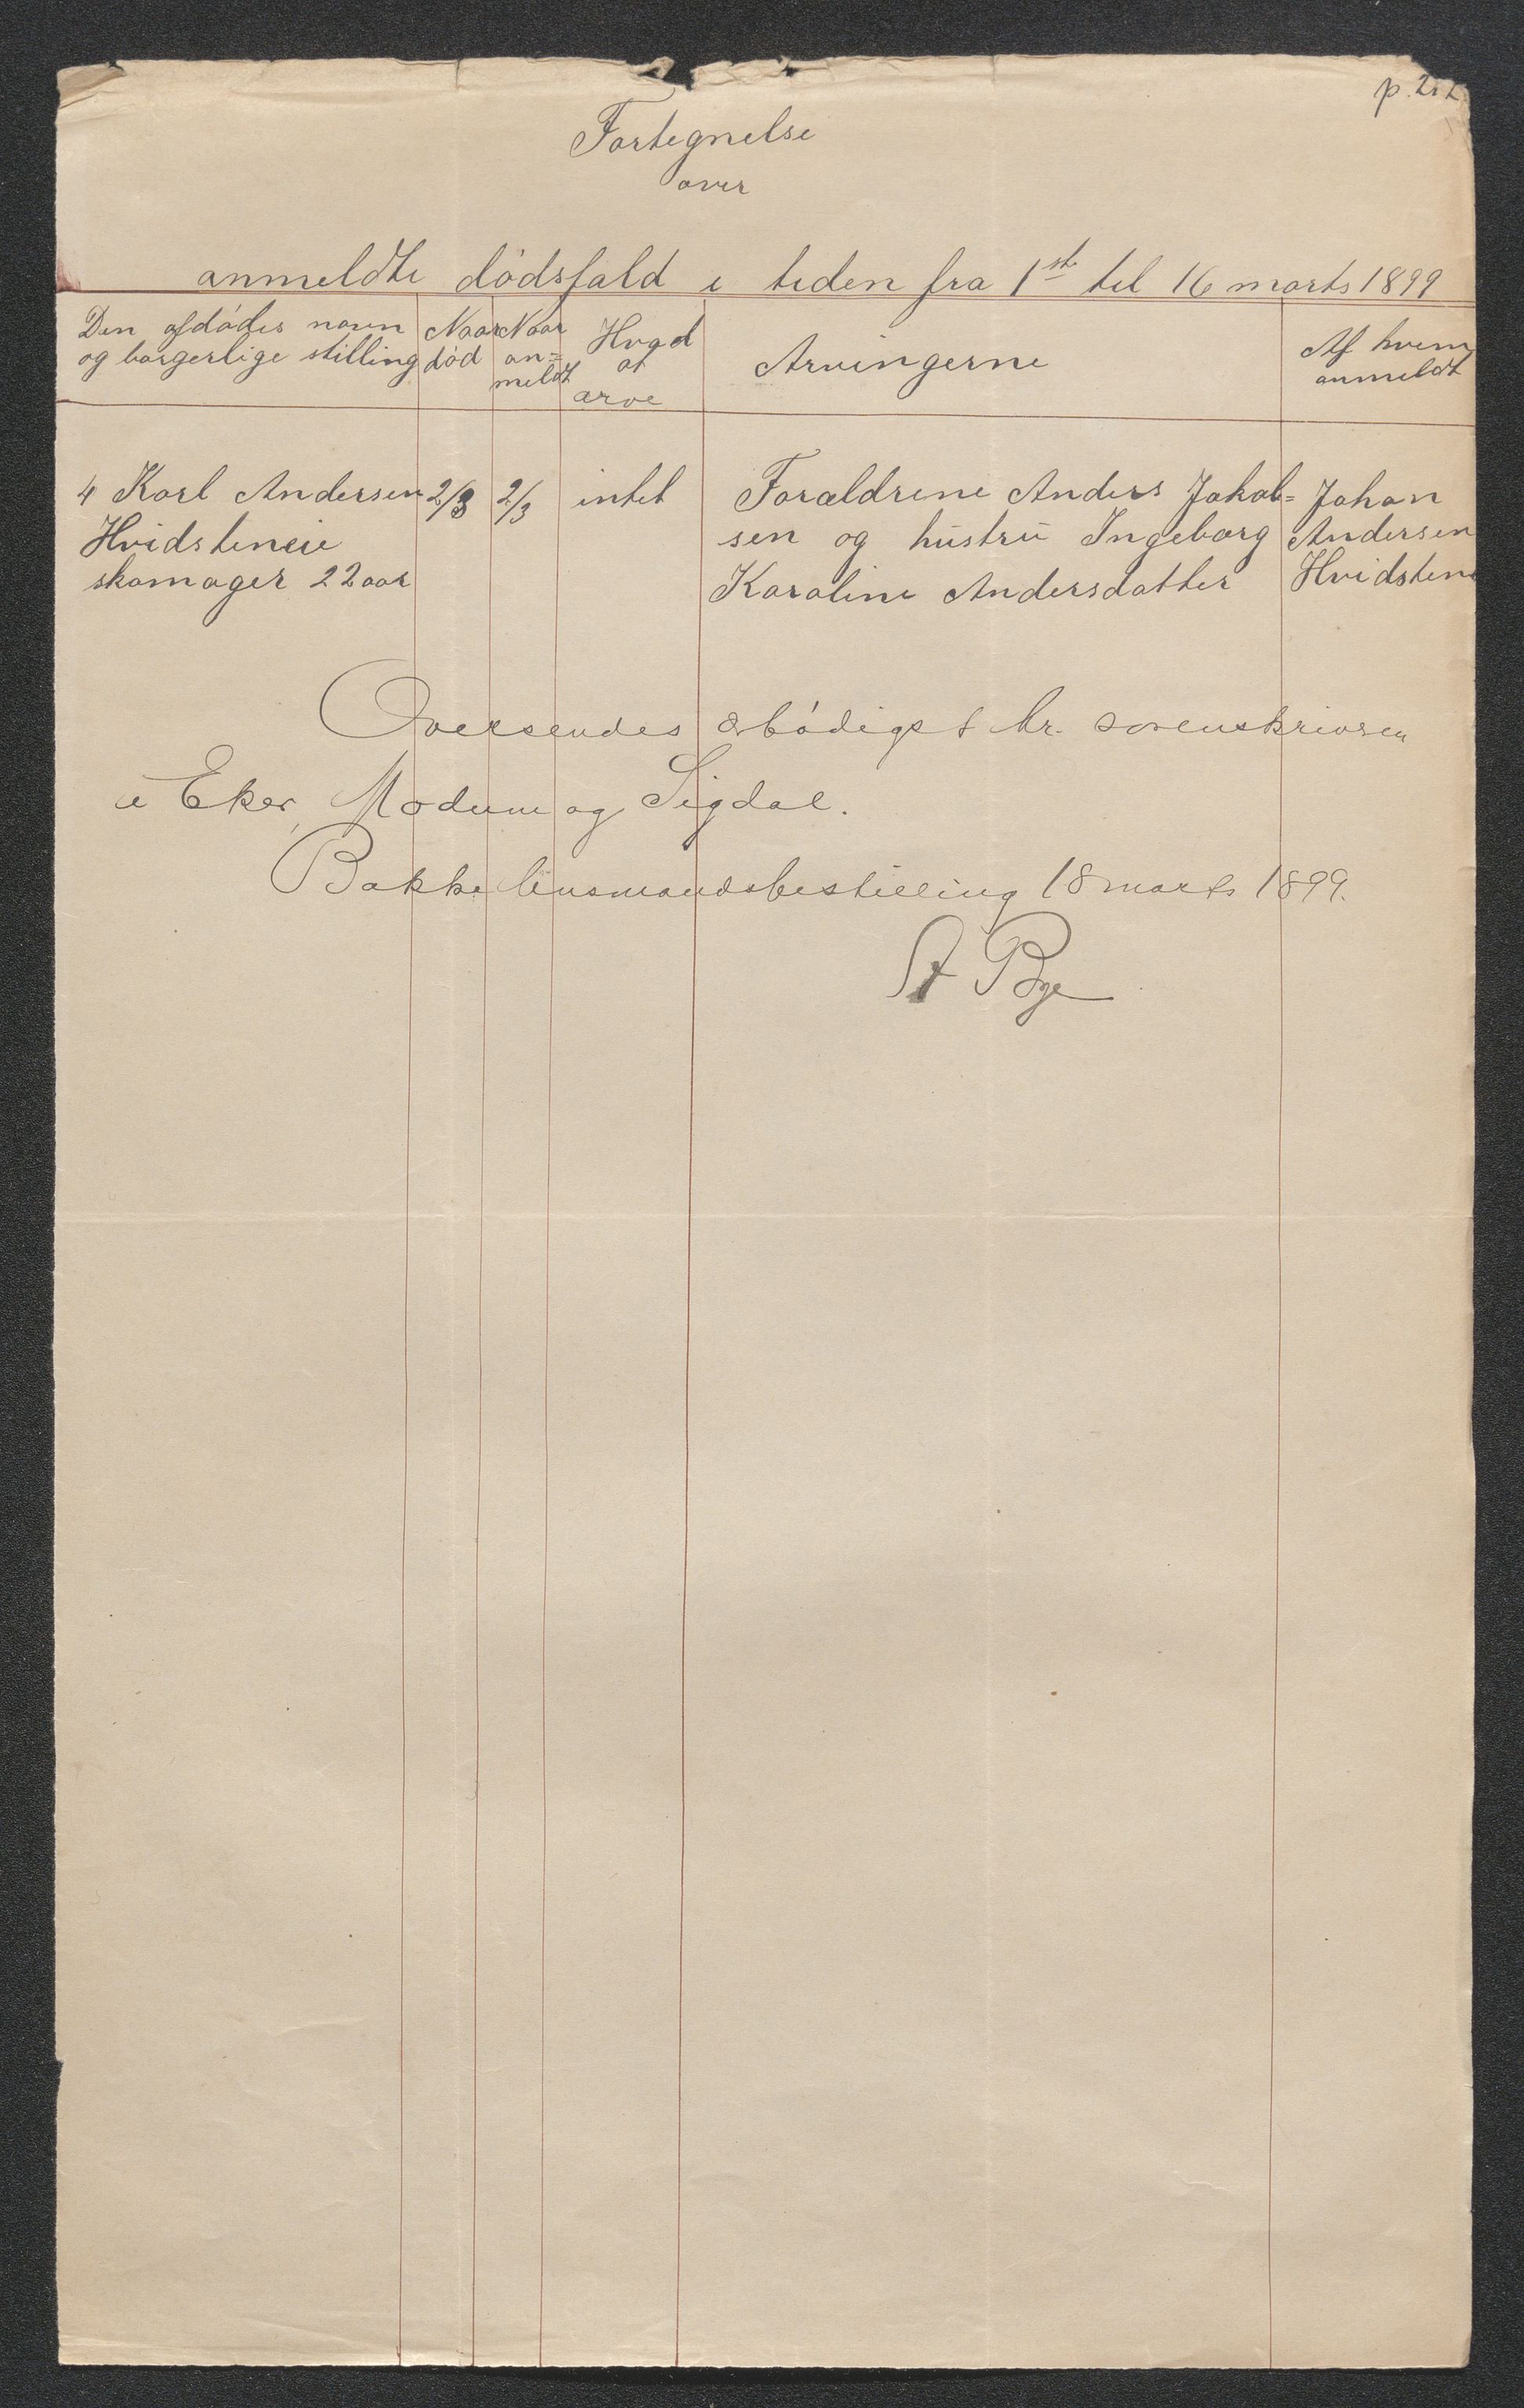 Fortegnelse
over
anmeldte dödsfald i tiden fra 1ste til 16 marts 1899
Den afdödes navn og borgerlige stilling
Naar död
Naar an= meldt
Hvad at arve
Arvingerne
Af hvem anmeldt
4 Karl Andersen 2/3 2/3 intet Forældrene Anders Jakob= Johan
Hvidsteneie sen og hustru Ingeborg Andersen
skomager 22 aar Karoline Andersdatter Hvidstene
Oversendes ærbödigst hr. sorenskriveren
i Eker, Modum og Sigdal.
Bakke lensmandsbestilling 18 marts 1899.